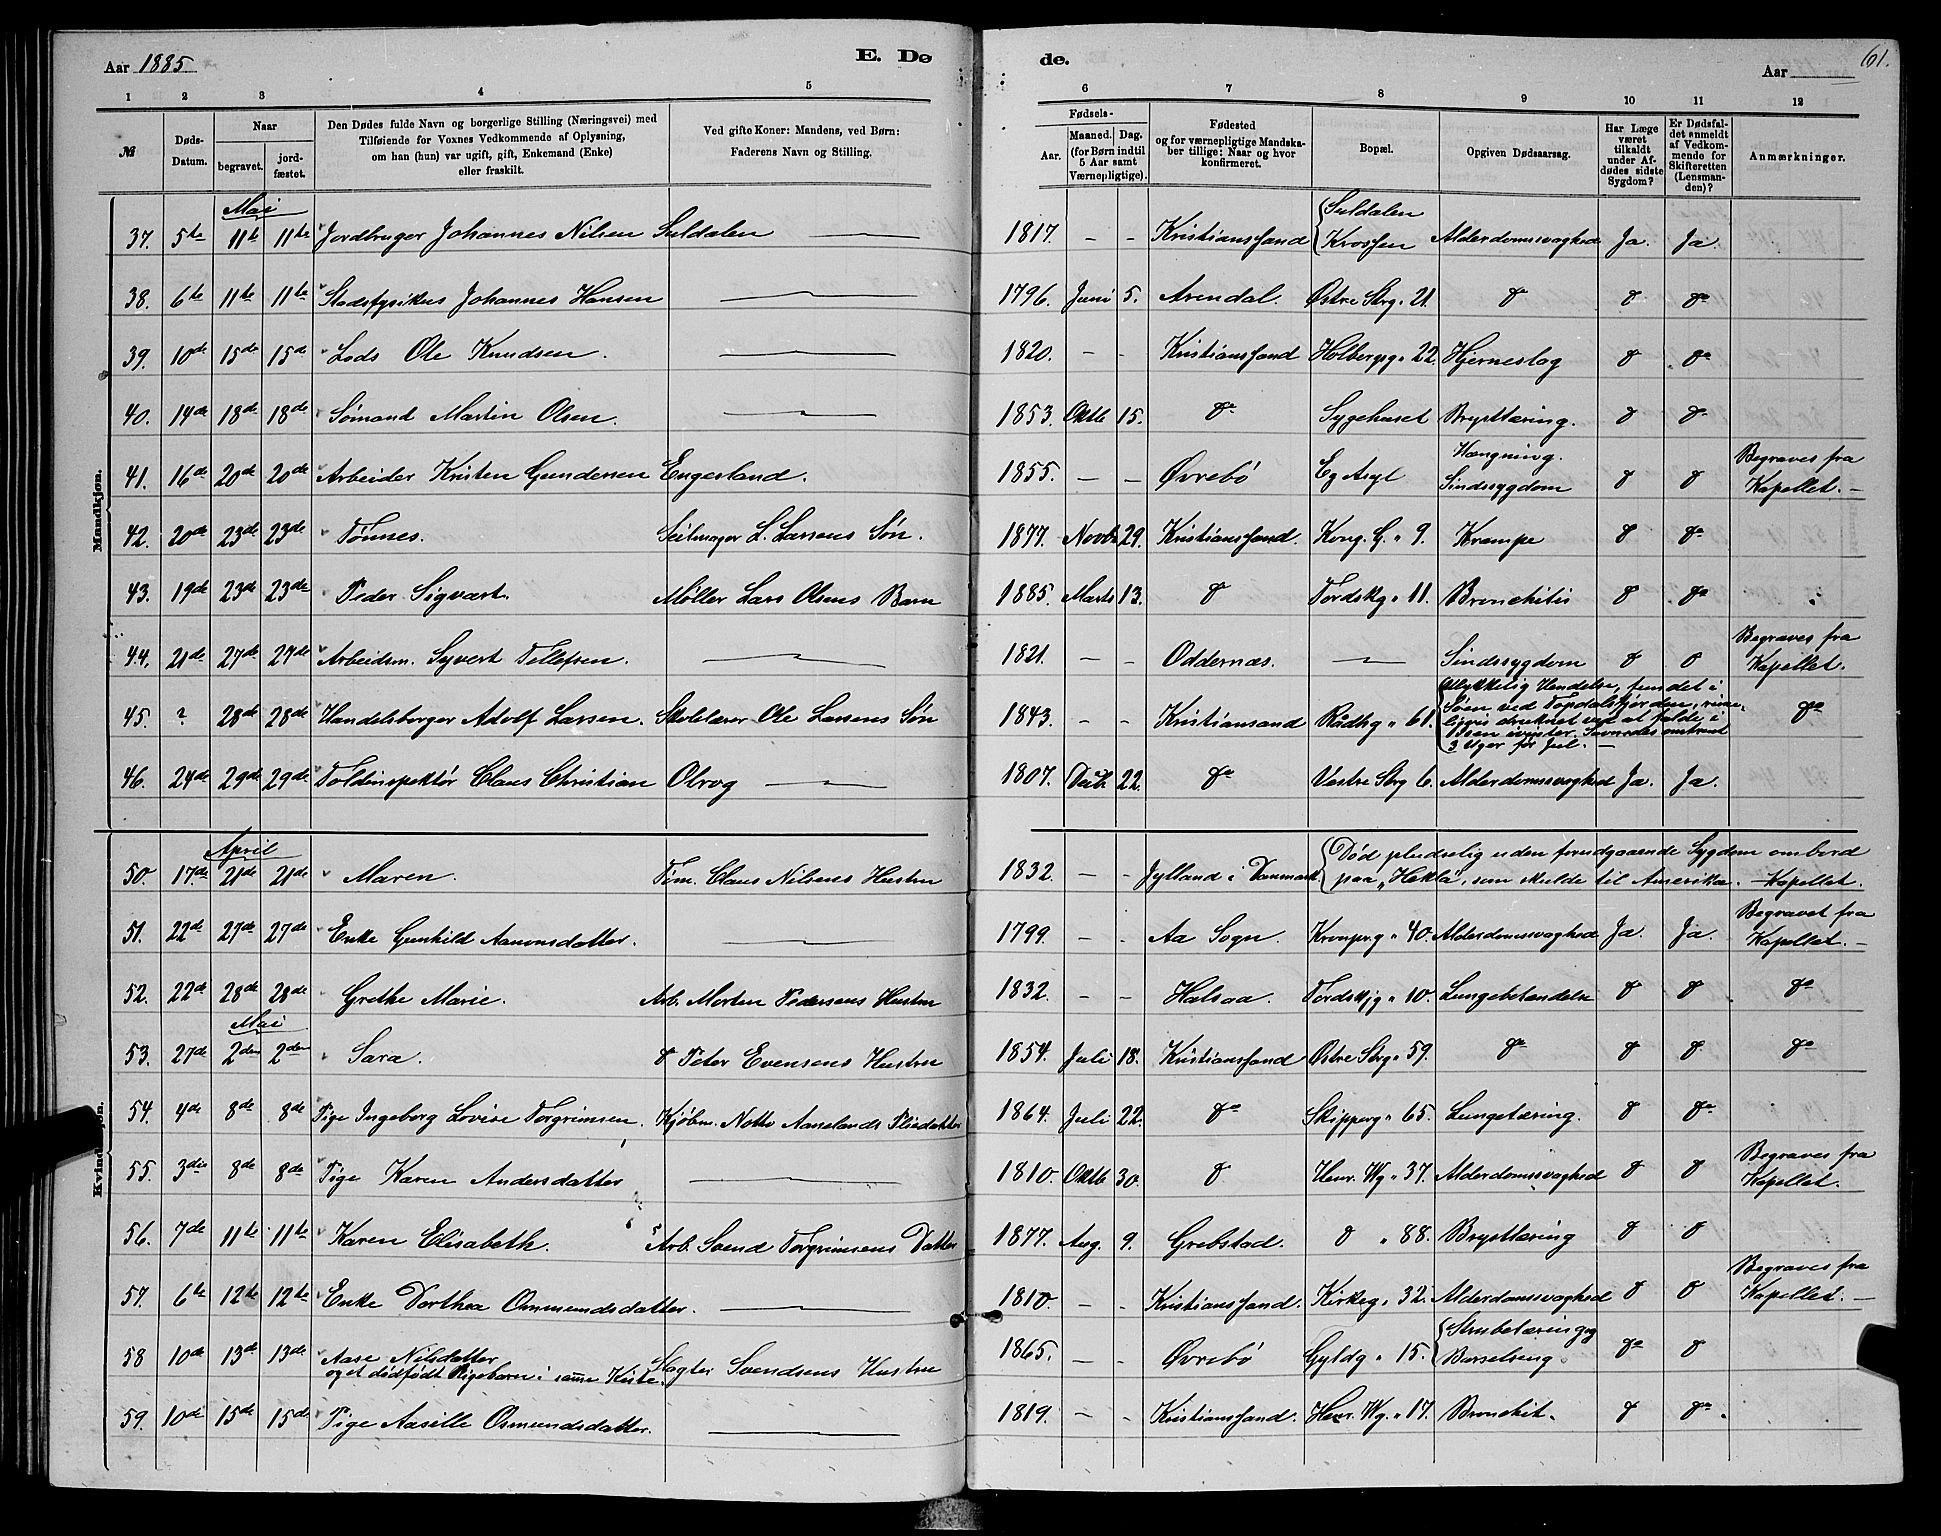 Aar 1885
E. Dø
de.
Aar
61.
1 2 3 4 5 6 7 8 9 10 11 12
№
Døds-
Datum.
Naar
begravet.
jord-
fæstet.
Den Dødes fulde Navn og borgerlige Stilling (Næringsvei) med
Tilføiende for Voxnes Vedkommende af Oplysning,
om han (hun) var ugift, gift, Enkemand (Enke)
eller fraskilt.
Ved gifte Koner: Mandens, ved Børn:
Faderens Navn og Stilling.
Fødsels-
Aar.
Maaned.
Dag.
(for Børn indtil
5 Aar samt
Værnepligtige).
Fødested
og for værnepligtige Mandska-
ber tillige: Naar og hvor
konfirmeret.
Bopæl.
Opgiven Dødsaarsag.
Har Læge
været
tilkaldt
under Af-
dødes sidste
Sygdom?
Er Dødsfal-
det anmeldt
af Vedkom-
mende for
Skifteretten
(Lensman-
den)?
Anmærkninger.
Mandkjøn.
Mai
37. 5te 11te 11te Jordbruger Johannes Nilsen Suldalen — 1817. - - Kristianssand Suldalen Krossen Alderdomssvaghed Ja. Ja.
38. 6te 11te 11te Stadsfysikus Johannes Hansen — 1796. Juni 5. Arendal. Østre Strg. 21. do do do
39. 10de 15de 15de Lods Ole Knudsen. — 1820. - - Kristianssand Holbergsg. 22. Hjerneslag do do
40. 14de 18de 18de Sømand Martin Olsen. — 1853. Oktb 15. do Sygehuset Brysttæring. do do
41. 16de 20de 20de Arbeider Kristen Gundersen Engesland. 1855. - - Øvrebø Eg Asyl Hængning. Sindssygdom do do Begraves fra Kapellet. —
42. 20de 23de 23de Tønnes. Seilmager L. Larsens Søn. 1877. Novbr 29. Kristianssand. Kong. G. 9. Krampe do do
43. 19de 23de 23de Peder Sigvart. Møller Lars Olsens Barn 1885. Marts 13. do Tordskg. 11. Bronchitis do do
44. 21de 27de 27de Arbeidsm. Syvert Tellefsen. — 1821. - - Oddernæs. — Sindssygdom do do Begraves fra Kapellet.
45. ? 28de 28de Handelsborger Adolf Larsen. Skolelærer Ole Larsens Søn 1843. - - Kristiansand Rådhg. 61. Ulykkelig Hændelse, fundet i
Søen ved Topdalsfjorden, rime-
ligvis druknet ved at falde i
Isen ivinter. Savnedes omtrent
3 Uger før Jul. — do
46. 24de 29de 29de Toldinspektør Claus Christian Olrog — 1807. Decb. 22. do Vestre Strg 6. Alderdomssvaghed Ja. Ja.
Kvindekjøn.
April
50. 17de 21de 21de Maren. Tøm. Claus Nilsens Hustru 1832. - - Jylland i Danmark. Død pludselig uden forudgaaende Sygdom ombord
paa "Hekla", som skulde til Amerika. — Kapellet.
51. 22de 27de 27de Enke Gunhild Aanonsdatter. — 1799. - - Aa Sogn. Kronprg. 40. Alderdomssvaghed Ja. Ja. Begravet fra Kapellet. —
52. 22de 28de 28de Grethe Marie. Arb. Morten Pedersens Hustru 1832. - - Halsaa. Tordskjg. 10. Lungebetændelse do do do
Mai
53. 27de 2den 2den Sara. do Peter Evensens Hustru 1854. Juli 18. Kristianssand Østre Strg. 59. do do do do
54. 4de 8de 8de Pige Ingeborg Lovise Torgrimsen. Kjøbm. Notto Aanelands Pliedatter 1864. Juli 22. do Skipperg. 65. Lungetæring. do do
55. 3die 8de 8de Pige Karen Andersdatter — 1810. Oktb 30. do Henr. Wg. 37. Alderdomssvaghed do do Begraves fra Kapellet.
56. 7de 11te 11te Karen Elisabeth. Arb. Svend Torgrimsens Datter 1877. Aug. 9. Grebstad. do 88. Brysttæring do do
57. 6te 12te 12te Enke Dorthea Ommundsdatter. — 1810. - - Kristianssand. Kirkeg. 32. Alderdomssvaghed do do Begraves fra Kapellet. —
58 10de 13de 13de Aase Nilsdatter
og et dødfødt Pigebarn i samme Kiste. Slagter Svendsens Hustru 1865. - - Øvrebø Gyldg. 15. Strubetæring og Barselseng. do do
59. 10de 15de 15de Pige Aasille Osmundsdatter. — 1819. - - Kristianssand. Henr. Wg. 17. Bronchit. do do